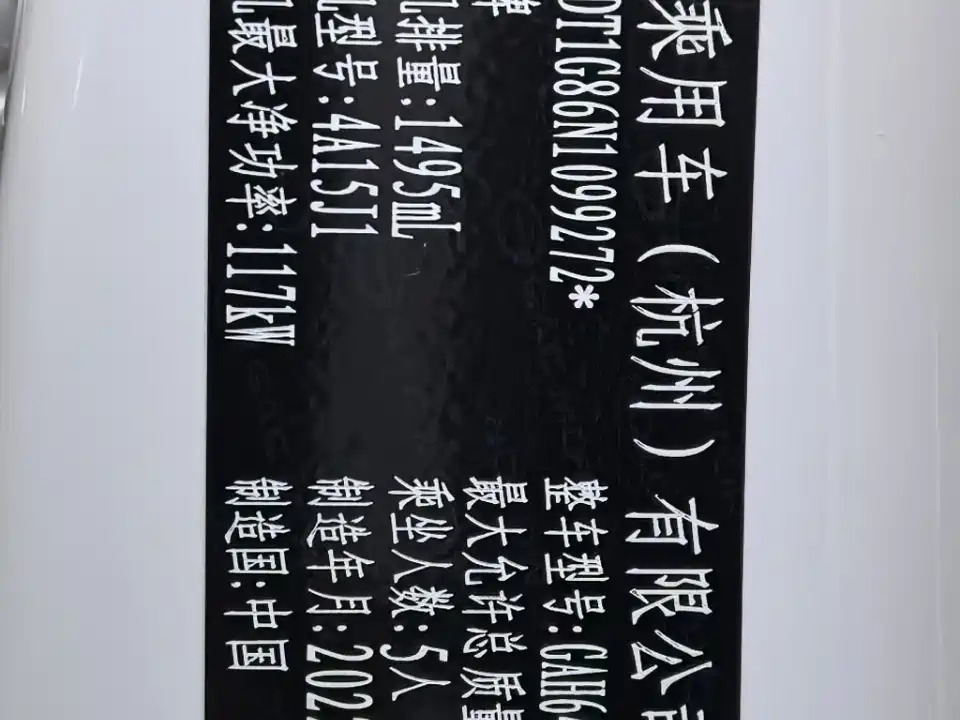 乘用车（杭州）有限公司
DT1G86N1099272*
整车型号:GAH64
牌
最大允许总质量
机排量:1495mL
乘坐人数:5人
机型号:4A15J1
制造年月:202
机最大净功率:117kW
制造国:中国